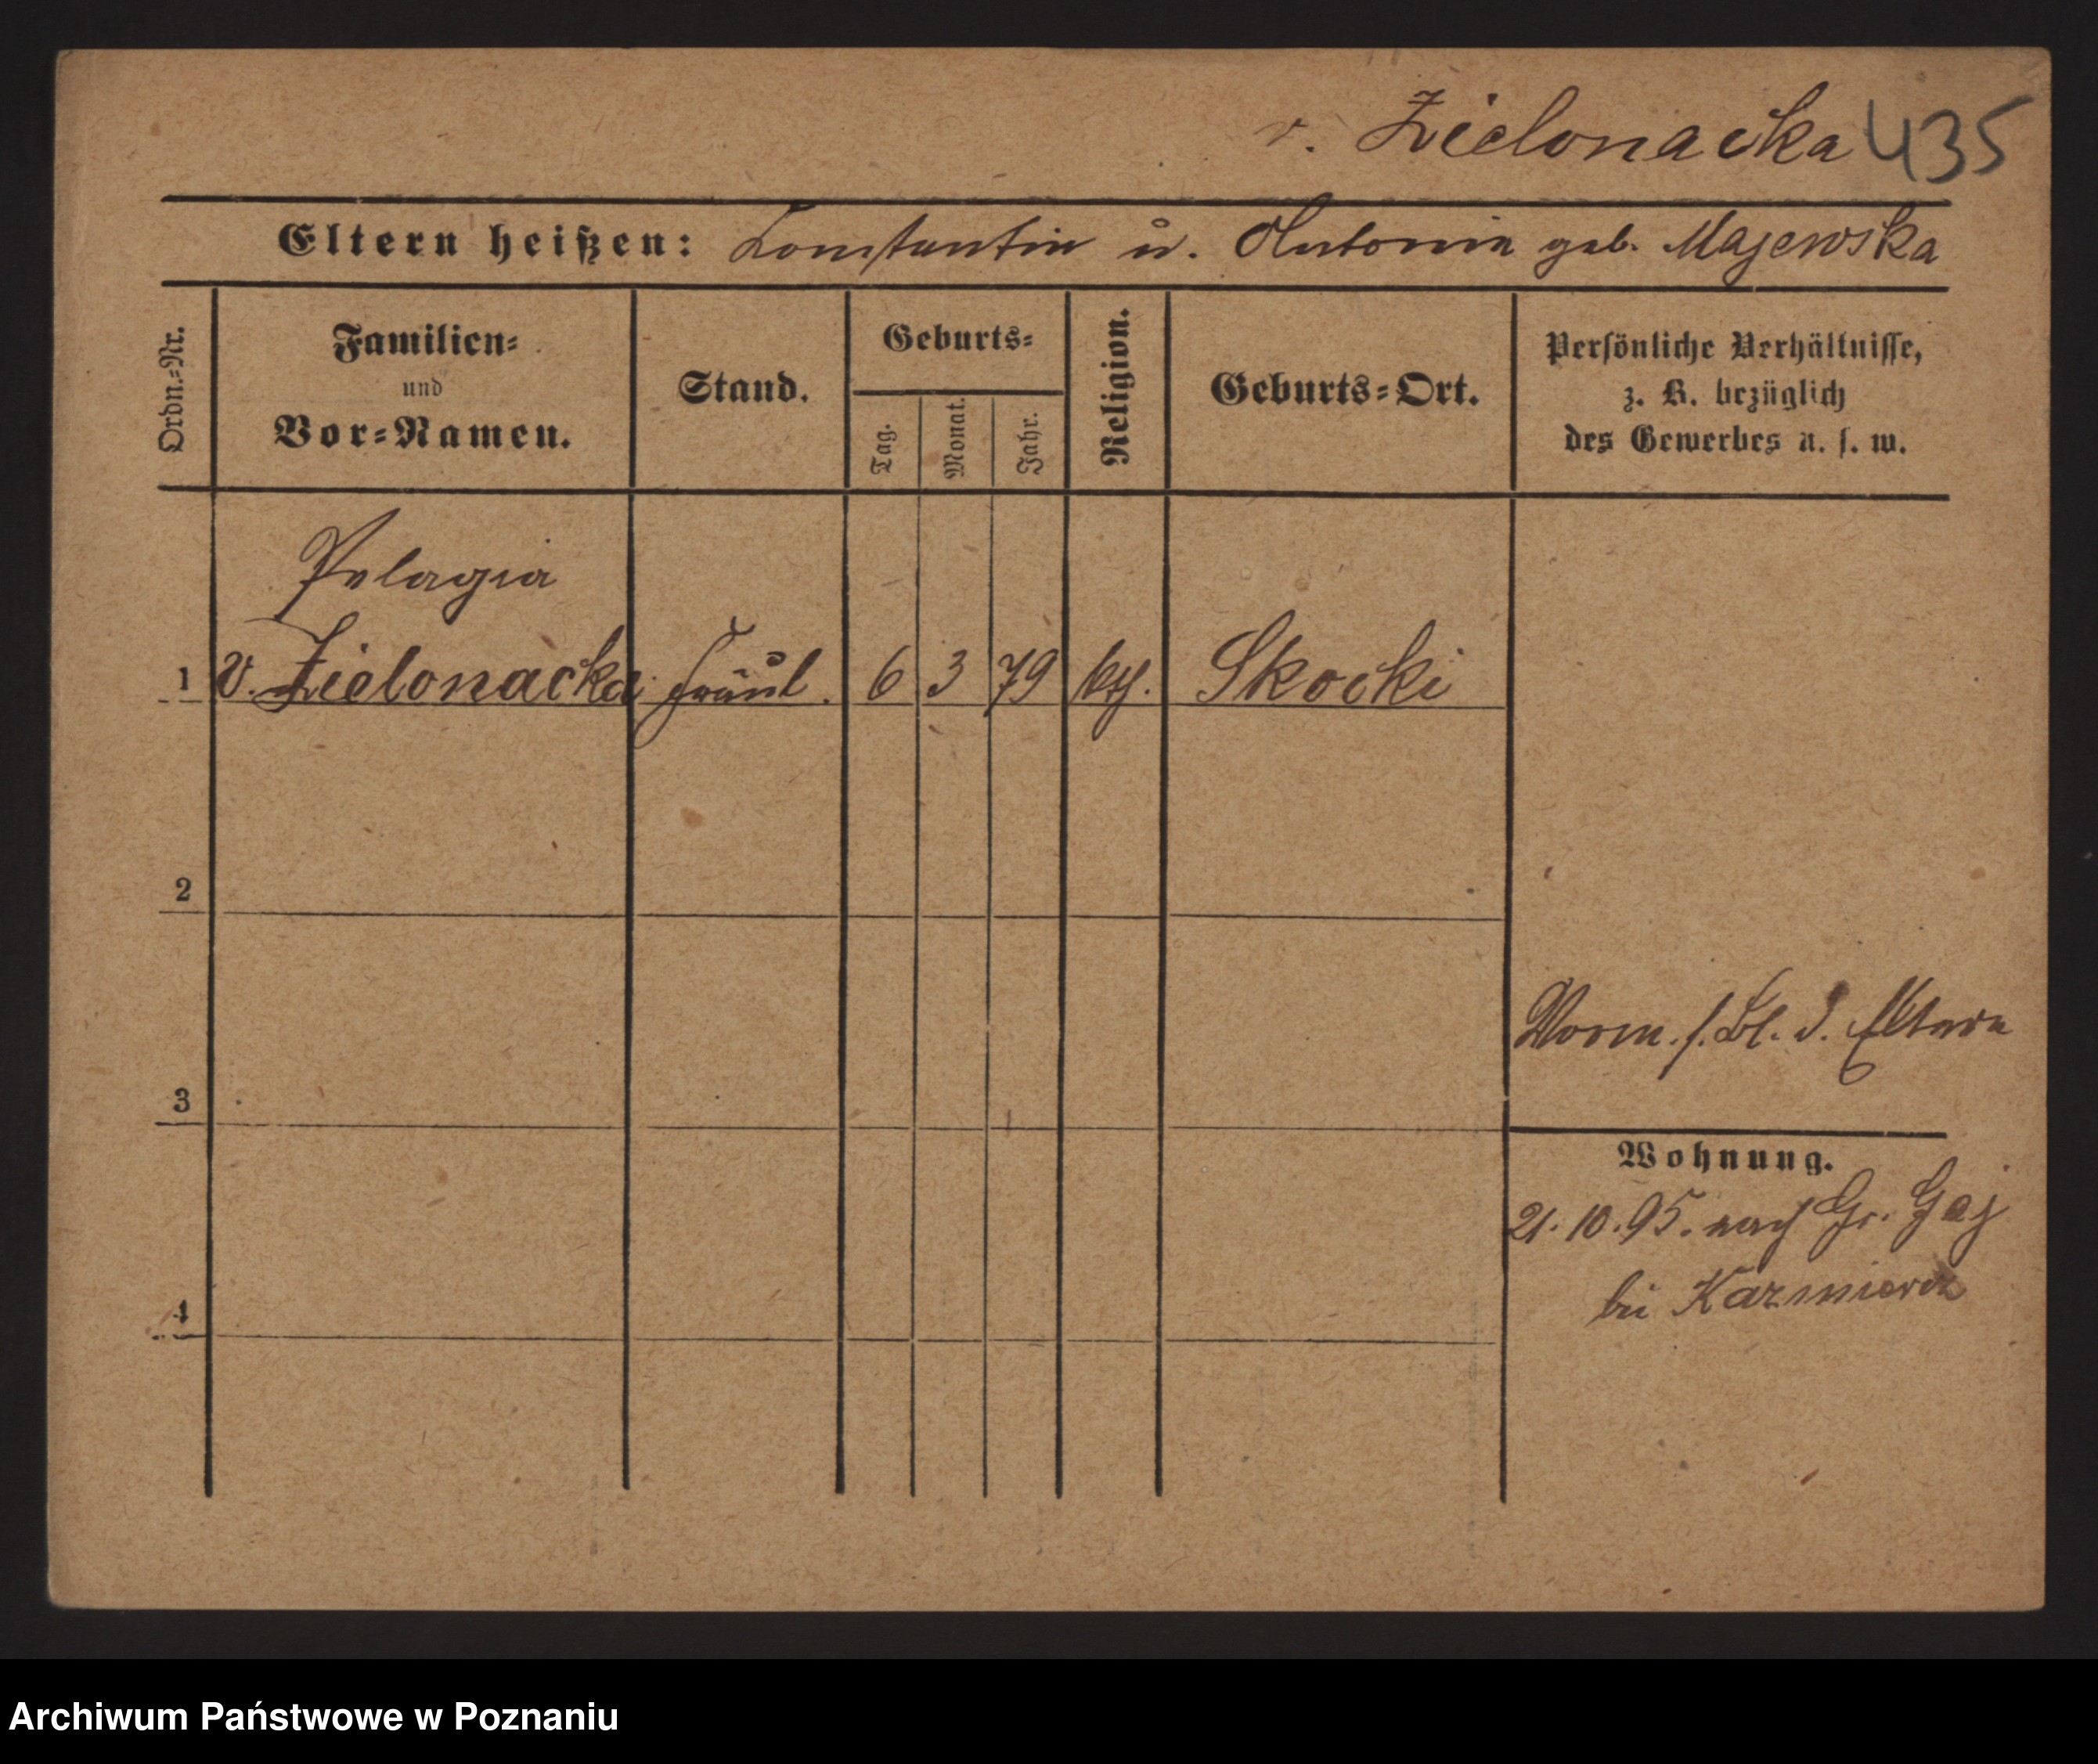 v. Zielonacka 435
Eltern heißen: Constantin u. Antonia geb. Majewska
Ordn.-Nr.
Familien-
und
Vor-Namen.
Stand.
Geburts-
Tag.
Monat.
Jahr.
Religion.
Geburts-Ort.
Persönliche Verhältnisse,
z. B. bezüglich
des Gewerbes u. s. w.
Pelagia
1 v. Zielonacka Fräul. 6 3 79 kth. Skocki
2
3
4
Vorm. s. Bl. d. Eltern
Wohnung.
21.10.95. nach Gr. Gaj
bei Kazmierz
Archiwum Państwowe w Poznaniu